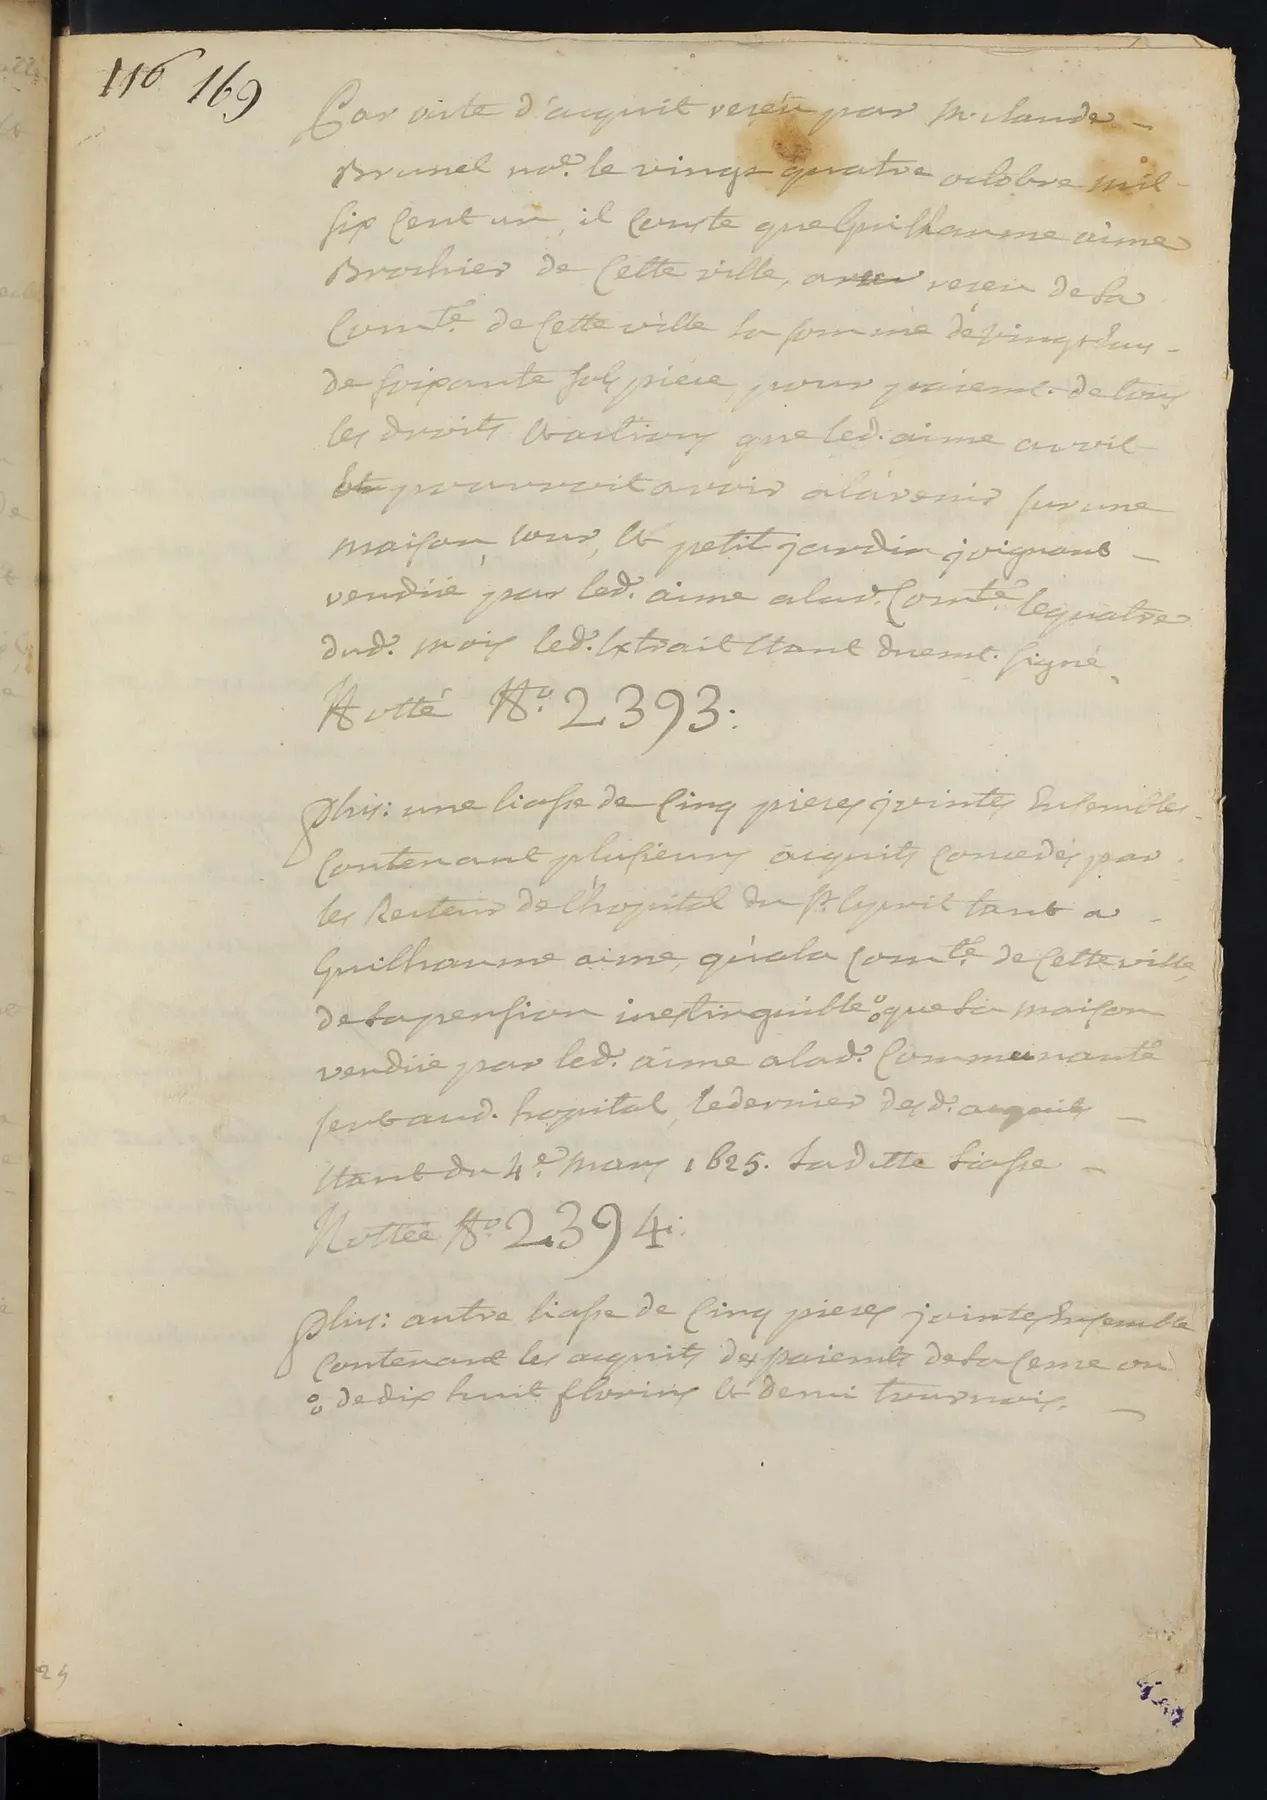 116 169
Par acte d'acquit receu par Mr. claude
Brunel nore. le vingt quatre octobre mil
six Cent un, il Conste que Guilhaume aime
Brochier de Cette ville, receu de la
Comté. de Cette ville la somme de vingt
de soixante sols piece, pour paiemt. de tous
les droits & actions que led. aime avoit
pourroit avoir a l'avenir sur une
maison, cour, & petit jardin joignant
vendüe par led. aime a lad. Comté. le quatre
dud. mois led. Extrait Etant duemt. signé,
Notté No. 2393:
Plus: une liasse de Cinq pieces jointes Ensembles
Contenant plusieurs acquits Concedés par
les Recteurs de l'hopital du St. Esprit tant a
Guilhaume aime, qu'a la Comté. de Cette ville,
de la pension inextinguible que la maison
vendüe par led. aime a lad. Communauté
sert aud. hopital, le dernier desd. acquits
Etant du 4e. Mars 1625. Laditte liasse
Nottée No. 2394:
Plus: autre liasse de Cinq pieces jointes Ensemble
Contenant les acquits des paiemts de la Cense ou
de dix huit florins & demi tournois.